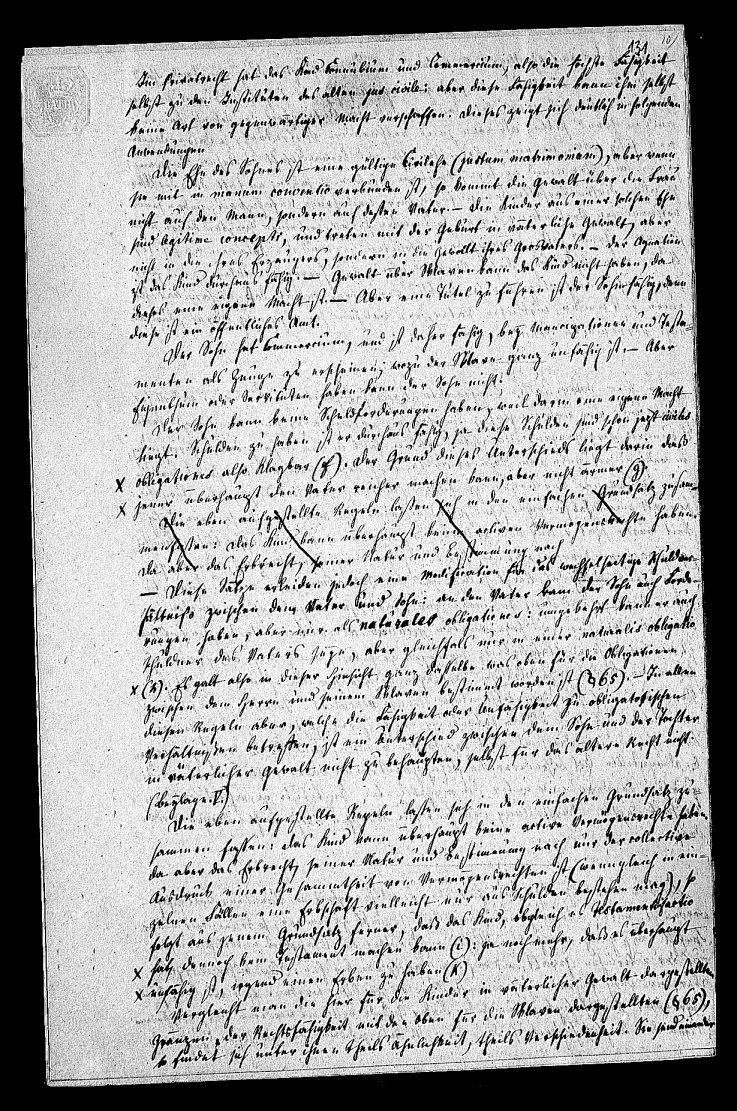 131
10
Im Privatrecht hat das Kind Connubium und Commercium, also die höchste Fähigkeit
selbst zu den Instituten des alten jus civile; aber diese Fähigkeit kann ihm selbst
keine Art von gegenwärtiger Macht verschaffen. Dieses zeigt sich deutlich in folgenden
Anwendungen
Die Ehe des Sohnes ist eine gültige Civilehe (justum matrimonium), aber wenn
sie mit in manum conventio verbunden ist, so kommt die Gewalt über die Frau
nicht auf den Mann, sondern auf dessen Vater. — Die Kinder aus einer solchen Ehe
sind legitime concepti, und treten mit der Geburt in väterliche Gewalt, aber
nicht in die ihres Erzeugers, sondern in die Gewalt ihres Großvaters. — Der Agnation
ist das Kind durchaus fähig. — Gewalt über Sklaven kann das Kind nicht haben, da
dieses eine eigene Macht ist. — Aber eine Tutel zu führen ist der Sohn fähig, denn
diese ist ein öffentliches Amt.
Der Sohn hat Commercium, und ist daher fähig, bey Mancipationen und Testa-
menten als Zeuge zu erscheinen, wozu der Sklave ganz unfähig ist. — Aber
Eigenthum oder Servituten haben kann der Sohn nicht.
Der Sohn kann keine Schuldforderungen haben, weil darin eine eigene Macht
liegt. Schulden zu haben ist er durchaus fähig, ja diese Schulden sind schon jetzt civiles
x obligationes also klagbar (f). Der Grund dieses Unterschieds liegt darin daß
x jener überhaupt den Vater reicher machen kann, aber nicht ärmer (g)
Die eben aufgestellte Regeln lassen sich in den einfachen Grundsatz zusam-
menfassen: das Kind kann überhaupt keine activen Vermögensrechte haben.
Da aber das Erbrecht, seiner Natur und Bestimmung nach
— Diese Sätze erleiden jedoch eine Modification für das wechselseitige Schuldver-
hältniß zwischen dem Vater und Sohn: an den Vater kann der Sohn auch Forde-
rungen haben, aber nur als naturales obligationes: umgekehrt kann er auch
Schuldner des Vaters seyn, aber gleichfalls nur in einer naturalis obligatio
x (h). Es galt also in dieser Hinsicht ganz dasselbe was oben für die Obligationen
zwischen dem Herrn und seinem Sklaven bestimmt worden ist (§ 65). — In allen
diesen Regeln aber, welche die Fähigkeit oder Unfähigkeit zu obligatorischen
Verhältnissen betreffen, ist ein Unterschied zwischen dem Sohn und der Tochter
in väterlicher Gewalt nicht zu behaupten, selbst für das ältere Recht nicht
(Beylage V.)
Die eben aufgestellte Regeln lassen sich in den einfachen Grundsatz zu-
sammen fassen: das Kind kann überhaupt keine active Vermögensrechte haben.
Da aber das Erbrecht, seiner Natur und Bestimmung nach nur der collective
Ausdruck einer Gesammtheit von Vermögensrechten ist (wenngleich in ein-
zelnen Fällen eine Erbschaft vielleicht nur aus Schulden bestehen mag), so
folgt aus jenem Grundsatz ferner, daß das Kind, obgleich es Testamentifactio
x hat, dennoch kein Testament machen kann (i): ja noch mehr, daß es überhaupt
x unfähig ist, irgend einen Erben zu haben (k)
Vergleicht man die hier für die Kinder in väterlicher Gewalt dargestellten
Gränzen der Rechtsfähigkeit mit den oben für die Sklaven dargestellten (§ 65),
so findet sich unter ihnen theils Ähnlichkeit, theils Verschiedenheit. Sie sind einander